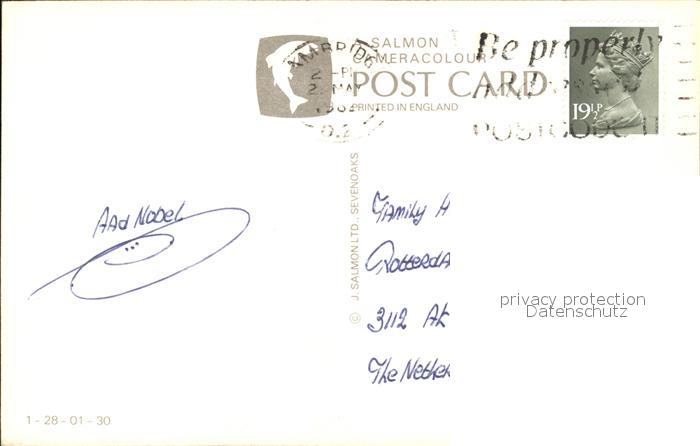 SALMON
CAMERACOLOUR
POST CARD
PRINTED IN ENGLAND
Be properly
POSTCODE IT
19½P
© J. SALMON LTD., SEVENOAKS
Aad Nobel
Family H
Rotterda
3112 AK
The Nether
privacy protection
Datenschutz
1-28-01-30